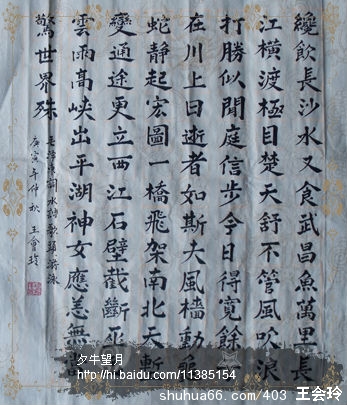 纔飲長沙水又食武昌魚萬里長
江橫渡極目楚天舒不管風吹浪
打勝似閒庭信步今日得寬餘
在川上曰逝者如斯夫風檣動
蛇靜起宏圖一橋飛架南北天塹
變通途更立西江石壁截斷巫
雲雨高峽出平湖神女應恙無
驚世界殊
毛澤東詞水調歌頭游泳
庚寅年仲秋王會玲
夕牛望月
http://hi.baidu.com/11385154
shuhua66.com/403 王会玲